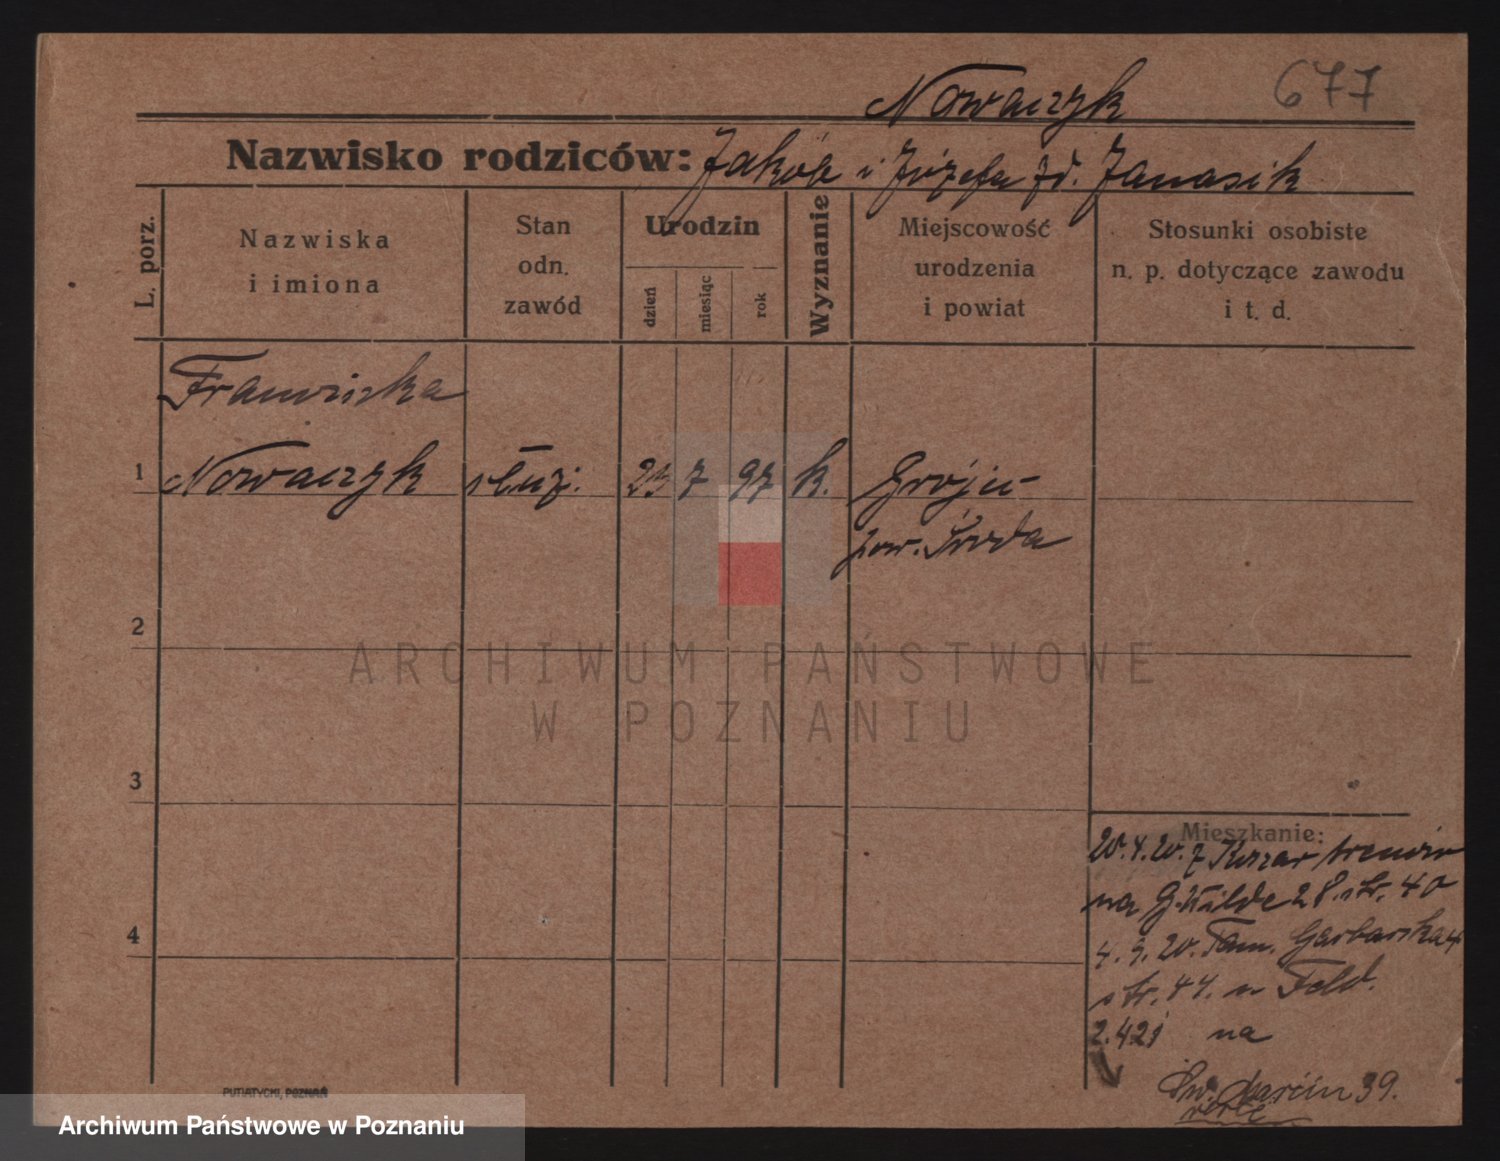 Nowaczyk 677
Nazwisko rodziców: Jakób i Józefa zd. Janasik
L. porz.
Nazwiska
i imiona
Stan
odn.
zawód
Urodzin
dzień
miesiąc
rok
Wyznanie
Miejscowość
urodzenia
i powiat
Stosunki osobiste
n. p. dotyczące zawodu
i t. d.
Franciszka
1 Nowaczyk służ. 23 7 97 k. Grójec
pow. Środa
2
ARCHIWUM PAŃSTWOWE
W POZNANIU
3
Mieszkanie:
20.4.20. z
na G. Wilde 28. str. 40
4.9.20. Tam. Garbarska 4
str. 44. u Feld.
2.421 na
4
Św. Marcin 39.
verte
PUTIATYCKI, POZNAŃ
Archiwum Państwowe w Poznaniu